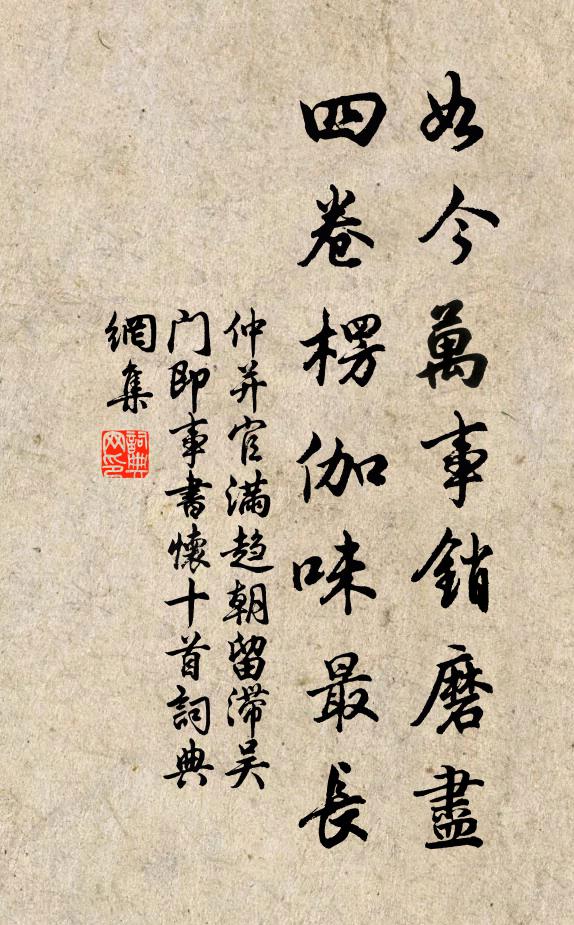 如今萬事銷磨盡
四卷楞伽味最長
仲并官滿趋朝留滯吴
门即事書懷十首詞典
網集
詞典
网印